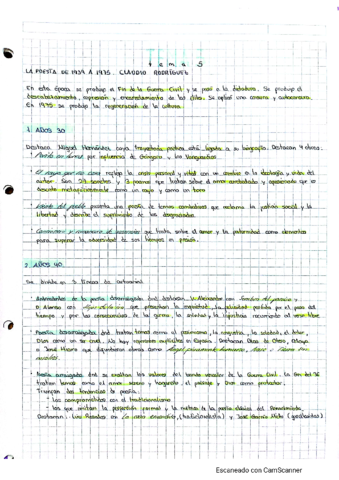 tema 5
LA POESÍA DE 1939 A 1975. CLAUDIO RODRÍGUEZ
En esta época se produjo el Fin de la Guerra Civil y se pasó a la dictadura. Se produjo el
y encarcelamiento de las élites. Se aplicó una censura y autocensura.
En 1975 se produjo la regeneración de la cultura.
1. AÑOS 30
Destaca Miguel Hernández cuya trayectoria poética está ligada a su biografía. Destacan 4 obras:
• Perito en lunas por influencia de Góngora y las Vanguardias
• El rayo que no cesa refleja la crisis personal y vital con un cambio a la ideología y vida del
autor. Son 27 sonetos y 3 poemas que tratan sobre el amor y apasionado que se
describe metafóricamente como un rayo y como un toro
• Viento del pueblo presenta una poesía de temas combativos que reclama la justicia social y la
libertad y describe el sufrimiento de los desgraciados.
• Cancionero y romancero de ausencias que trata sobre el amor y la paternidad como elementos
para superar la adversidad de sus tiempos en prisión.
2. AÑOS 40
Se divide en 3 líneas
• Antecedentes de la poesía desarraigada dnd destacan V. Aleixandre con Sombra del paraíso y
D. Alonso con Hijos de la ira que presentan la por el paso del
tiempo y por las consecuencias de la guerra, la soledad y la recurriendo al verso libre
• Poesía desarraigada dnd tratan temas como el pesimismo, la angustia, la soledad, el dolor,
Dios como un ser cruel. No hay en España. Destacan Blas de Otero,
o José Hierro que obras como Ángel fieramente humano,
• Poesía arraigada dnd se exaltan los valores del bando vencedor de la Guerra Civil. En fin del 36
tratan temas como el amor sereno y , el paisaje y Dios como protector.
tendencias de poesía:
- Los comprometidos con el tradicionalismo
- Los que imitan la perfección formal y la métrica de la poesía clásica del Renacimiento.
Destacan: Luis Rosales en La casa encendida (tradicionalista) y José García Nieto (garcilasistas)
Escaneado con CamScanner